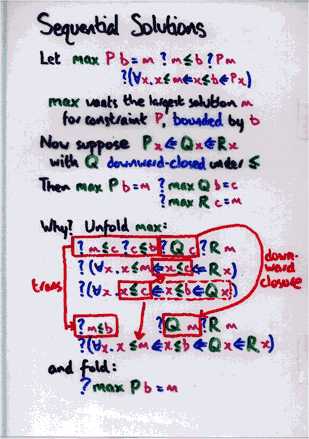 Sequential Solutions
Let max P b = m ? m ≤ b ? P m
? (∀x. x ≤ m ⇐ x ≤ b ⇐ P x)
max wants the largest solution m
for constraint P, bounded by b
Now suppose P x ⇐ Q x ⇐ R x
with Q downward-closed under ≤
Then max P b = m ? max Q b = c
? max R c = m
Why? Unfold max:
? m ≤ c ? c ≤ b ? Q c ? R m
? (∀x. x ≤ m ⇐ x ≤ c ⇐ R x)
? (∀x. x ≤ c ⇐ x ≤ b ⇐ Q x)
trans
down-
ward
closure
? m ≤ b ? Q m ? R m
? (∀x. x ≤ m ⇐ x ≤ b ⇐ Q x ⇐ R x)
and fold:
? max P b = m